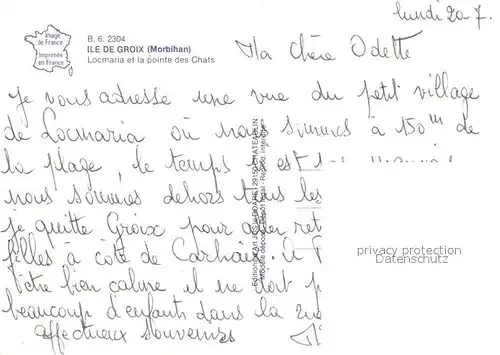 lundi 20-7.
Image
de France
Imprimée
en France
B. 6. 2304
ILE DE GROIX (Morbihan)
Locmaria et la pointe des Chats
Ma chère Odette
Je vous adresse une vue du petit village
de Locmaria où nous sommes à 150m de
la plage, le temps
nous sommes dehors tous les
je quitte Groix pour aller
filles à côté de Carhaix. A
être bien calme il ne doit
beaucoup d'enfants dans la
affectueux souvenirs
privacy protection
Datenschutz